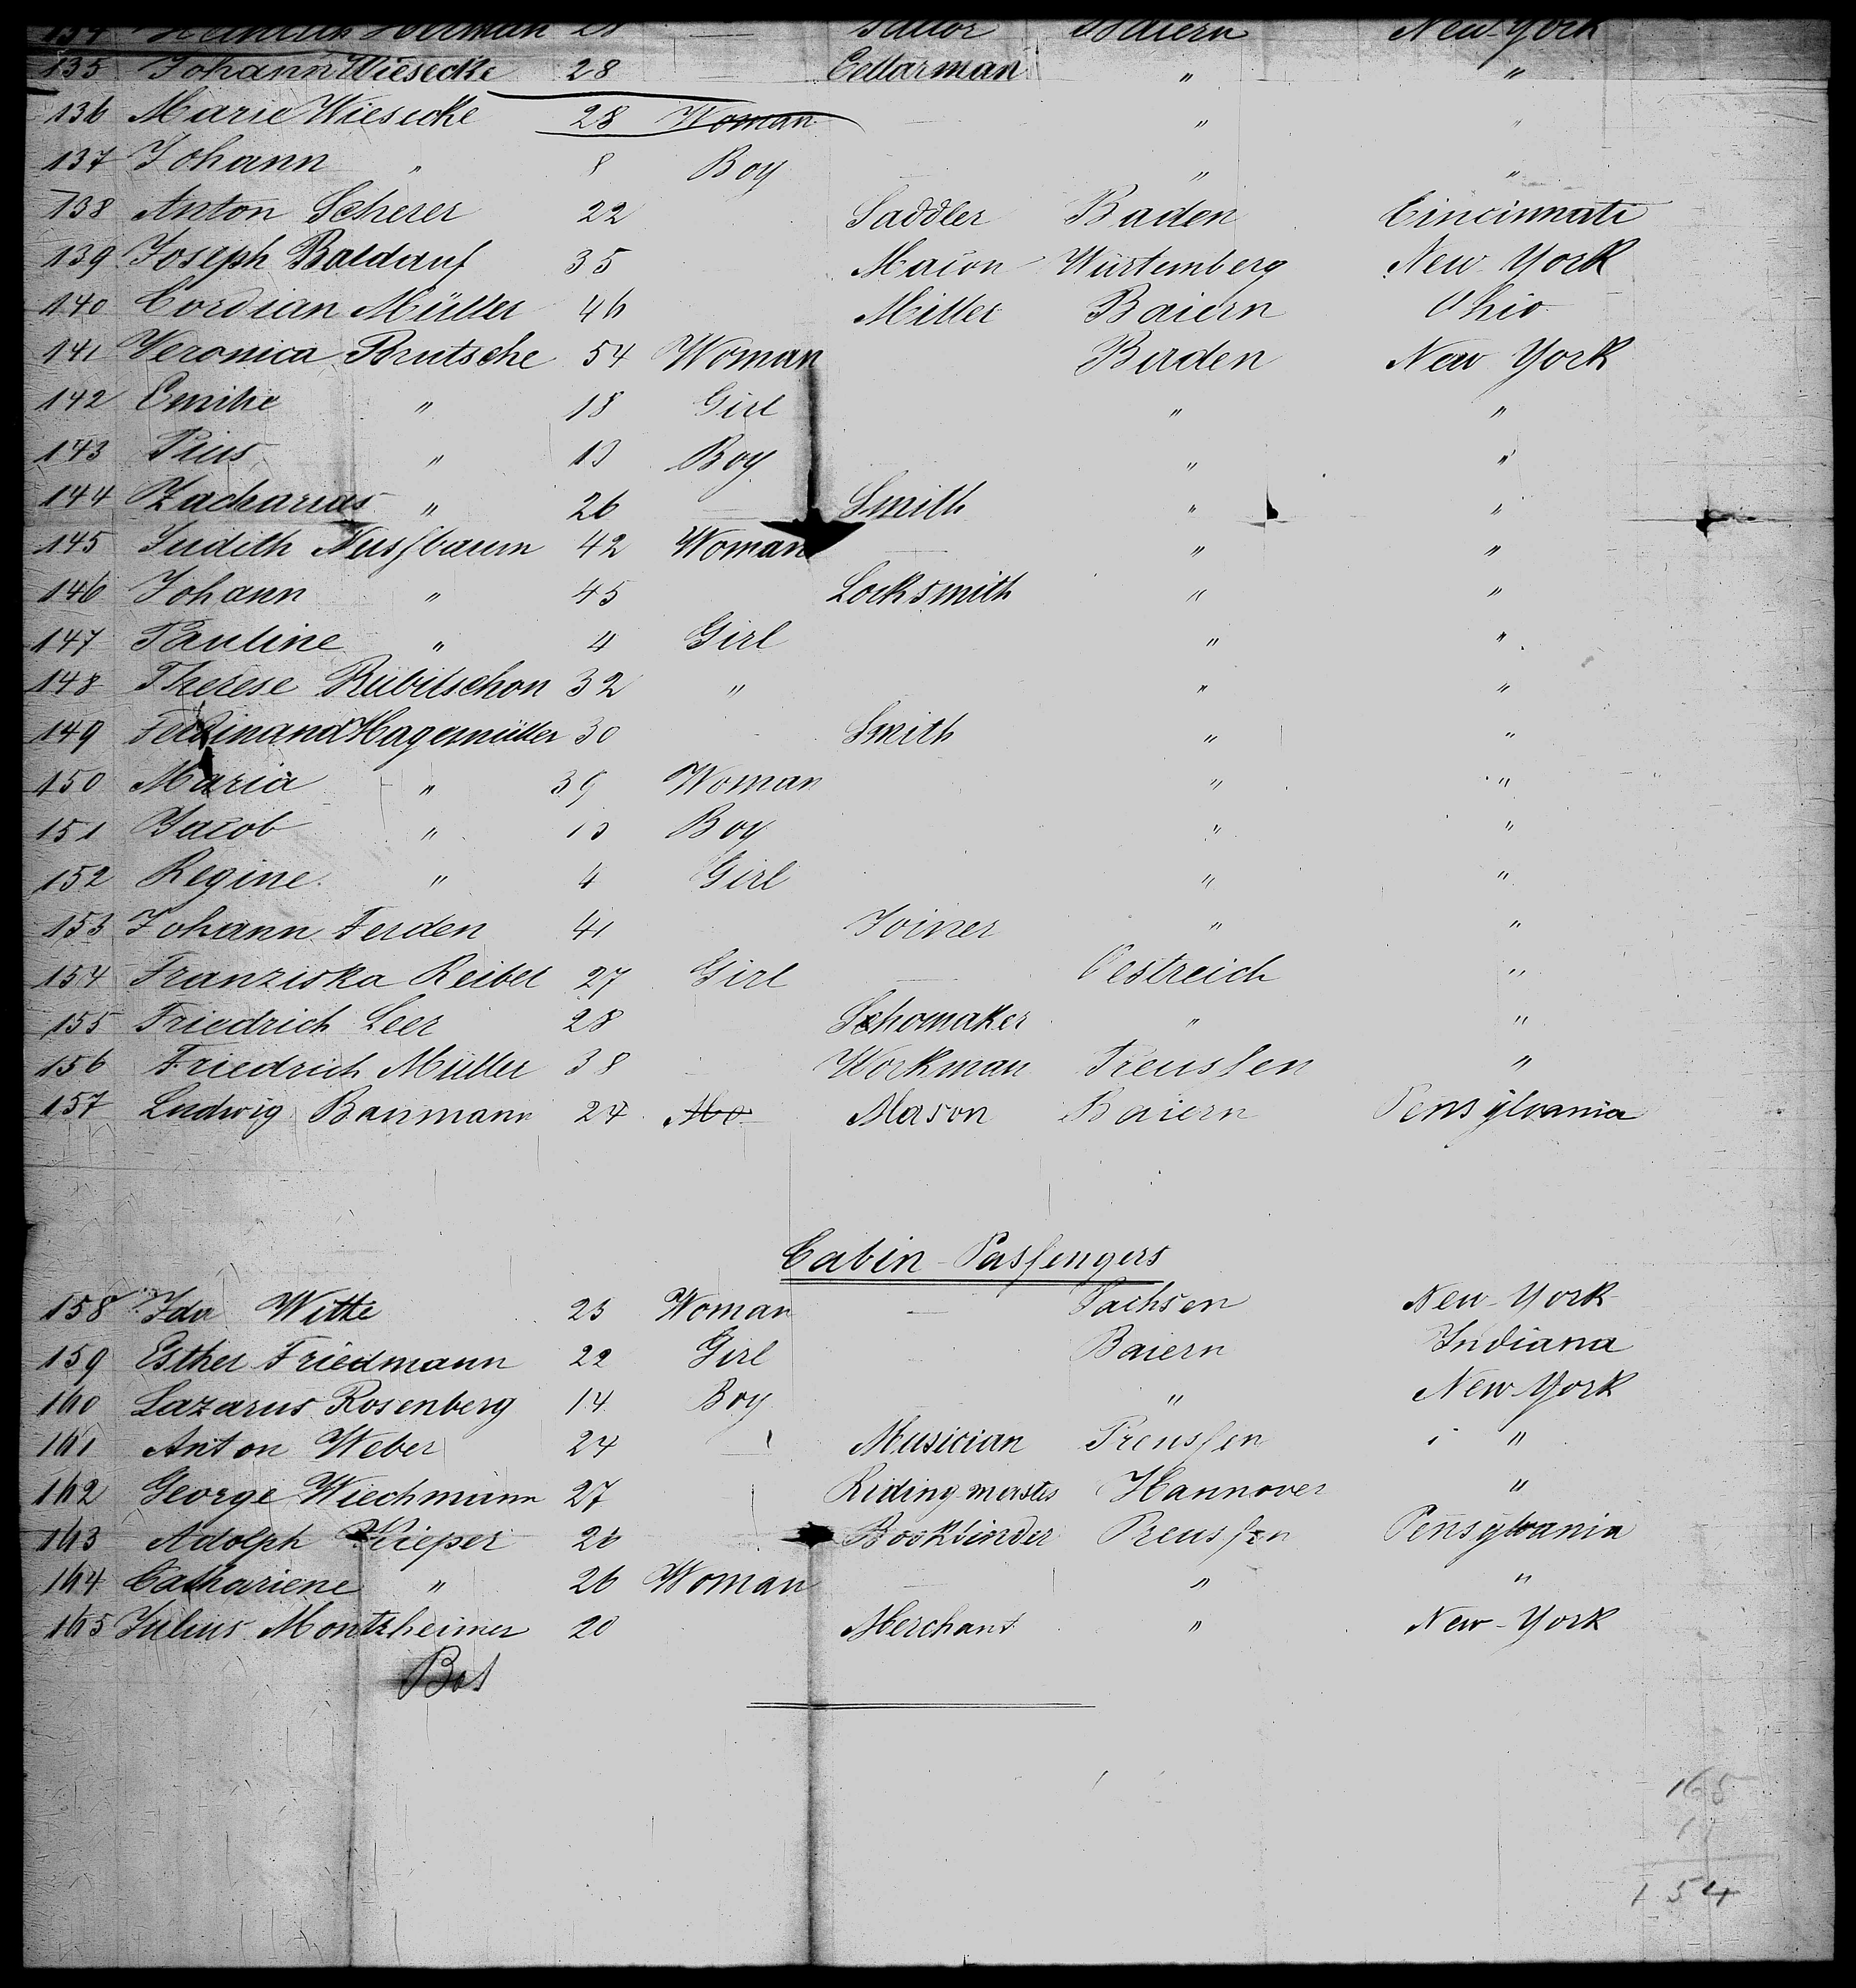 134 28 — Sailor Baiern New-York
135 Johann Wiesecke 28 — Cellarman " "
136 Marie Wiesecke 28 Woman — " "
137 Johann " 8 Boy " "
138 Anton Scherer 22 Saddler Baden Cincinnati
139 Joseph Baldauf 35 Macon Würtemberg New-York
140 Cordian Müller 46 Miller Baiern Ohio
141 Veronica Brutsche 54 Woman Baden New York
142 Emilie " 18 Girl " "
143 Pius " 13 Boy " "
144 Zacharias " 26 — Smith " "
145 Judith Nusſbaum 42 Woman — " "
146 Johann " 45 Locksmith " "
147 Pauline " 4 Girl " "
148 Therese Rübitschon 32 " " "
149 Ferdinand Hagenmüller 30 Smith " "
150 Maria " 39 Woman " "
151 Jacob " Boy " "
152 Regine " 4 Girl " "
153 Johann Ferden 41 Joiner " "
154 Franziska Reiber 27 Girl — Oestreich "
155 Friedrich Leer 28 Schomaker " "
156 Friedrich Müller 38 Workman Preusſen "
157 Ludwig Baumann 24 Mason Baiern Pensylvania
Cabin-Pasſengers
158 Ida Witte 25 Woman — Sachsen New-York
159 Esther Friedmann 22 Girl Baiern Indiana
160 Lazarus Rosenberg 14 Boy " New-York
161 Anton Weber 24 — Musician Preusſen "
162 George Wiechmann 27 Riding-master Hannover "
163 Adolph Kieper 26 Bookbinder Preusſen Pensylvania
164 Cathariene " 26 Woman — " "
165 Julius Montzheimer 20 Merchant " New-York
165
11
154